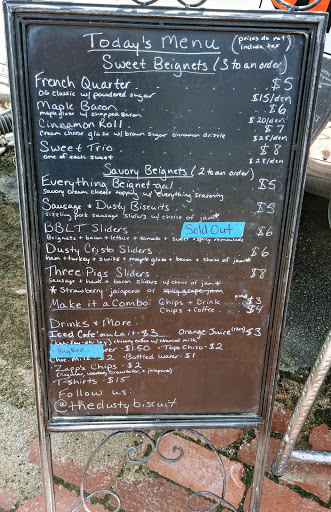 Today's Menu
(prices do not
include tax)
Sweet Beignets (3 to an order)
French Quarter $5
OG classic w/ powdered sugar $15/dzn
Maple Bacon $6
maple glaze w/ chopped bacon $20/dzn
Cinnamon Roll $7
cream cheese glaze w/ brown sugar cinnamon drizzle $25/dzn
Sweet Trio $8
one of each sweet $28/dzn
Savory Beignets (2 to an order)
Everything Beignet-gal $5
savory cream cheese topping w/ everything seasoning
Sausage & Dusty Biscuits $5
sizzling pork sausage sliders w/ choice of jam*
BBLT Sliders Sold Out $6
Beignets + bacon + lettuce + tomato + sweet + spicy remoulade
Dusty Cristo Sliders $6
ham + turkey + swiss + maple glaze + bacon + choice of jam*
Three Pigs Sliders $8
sausage + ham + bacon sliders w/ choice of jam*
* Strawberry jalapeno or spicy grape jam
Make it a Combo: Chips + Drink $3
Chips + Coffee $4
Drinks & More:
Iced Cafe au Lait $3 Orange Juice $3
chicory coffee w/ steamed milk
$1.50 · Topo Chico $2
Milk $2 · Bottled water $1
Zapp's Chips - $2
(regular, voodoo, crawtator, + jalapeno)
T-shirts - $15
Follow us:
@thedustybiscuit